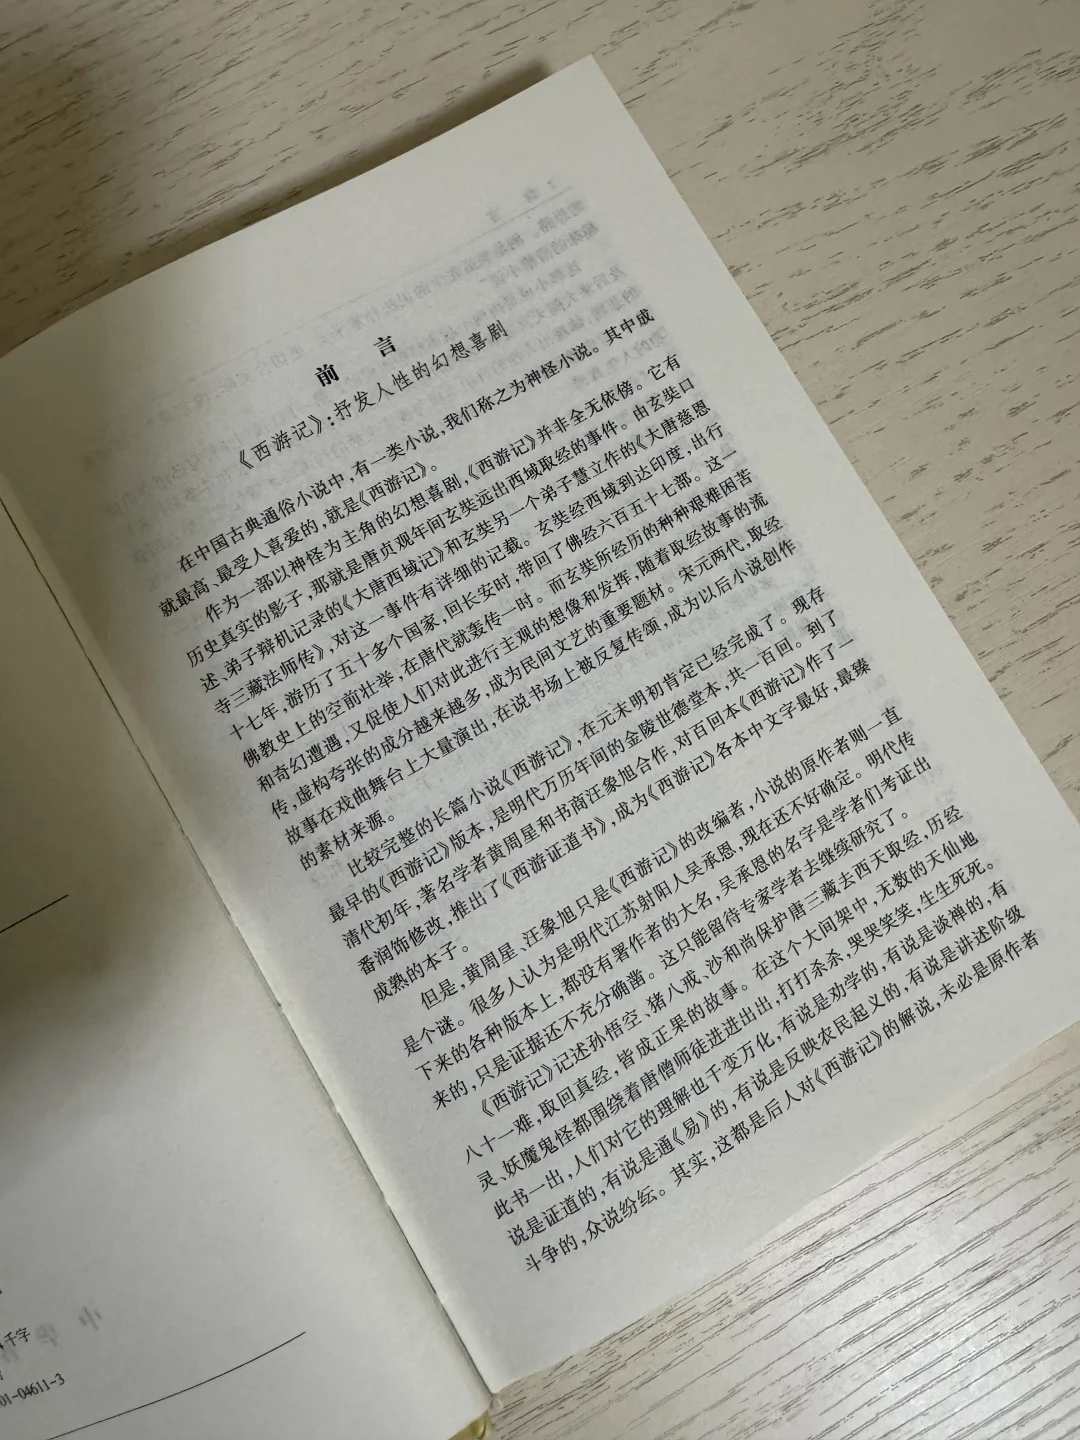 前　言
《西游记》:抒发人性的幻想喜剧
在中国古典通俗小说中,有一类小说,我们称之为神怪小说。其中成
就最高、最受人喜爱的,就是《西游记》。
作为一部以神怪为主角的幻想喜剧,《西游记》并非全无依傍。它有
历史真实的影子,那就是唐贞观年间玄奘远出西域取经的事件。由玄奘口
述、弟子辩机记录的《大唐西域记》和玄奘另一个弟子慧立作的《大唐慈恩
寺三藏法师传》,对这一事件有详细的记载。玄奘经西域到达印度,出行
十七年,游历了五十多个国家,回长安时,带回了佛经六百五十七部。这一
佛教史上的空前壮举,在唐代就轰传一时。而玄奘所经历的种种艰难困苦
和奇幻遭遇,又促使人们对此进行主观的想像和发挥,随着取经故事的流
传,虚构夸张的成分越来越多,成为民间文艺的重要题材。宋元两代,取经
故事在戏曲舞台上大量演出,在说书场上被反复传颂,成为以后小说创作
的素材来源。
比较完整的长篇小说《西游记》,在元末明初肯定已经完成了。现存
最早的《西游记》版本,是明代万历年间的金陵世德堂本,共一百回。到了
清代初年,著名学者黄周星和书商汪象旭合作,对百回本《西游记》作了一
番润饰修改,推出了《西游证道书》,成为《西游记》各本中文字最好,最臻
成熟的本子。
但是,黄周星、汪象旭只是《西游记》的改编者,小说的原作者则一直
是个谜。很多人认为是明代江苏射阳人吴承恩,现在还不好确定。明代传
下来的各种版本上,都没有署作者的大名,吴承恩的名字是学者们考证出
来的,只是证据还不充分确凿。这只能留待专家学者去继续研究了。
《西游记》记述孙悟空、猪八戒、沙和尚保护唐三藏去西天取经,历经
八十一难,取回真经,皆成正果的故事。在这个大间架中,无数的天仙地
灵、妖魔鬼怪都围绕着唐僧师徒进进出出,打打杀杀,哭哭笑笑,生生死死。
此书一出,人们对它的理解也千变万化,有说是劝学的,有说是谈禅的,有
说是证道的,有说是通《易》的,有说是反映农民起义的,有说是讲述阶级
斗争的,众说纷纭。其实,这都是后人对《西游记》的解说,未必是原作者
千字
01-04611-3